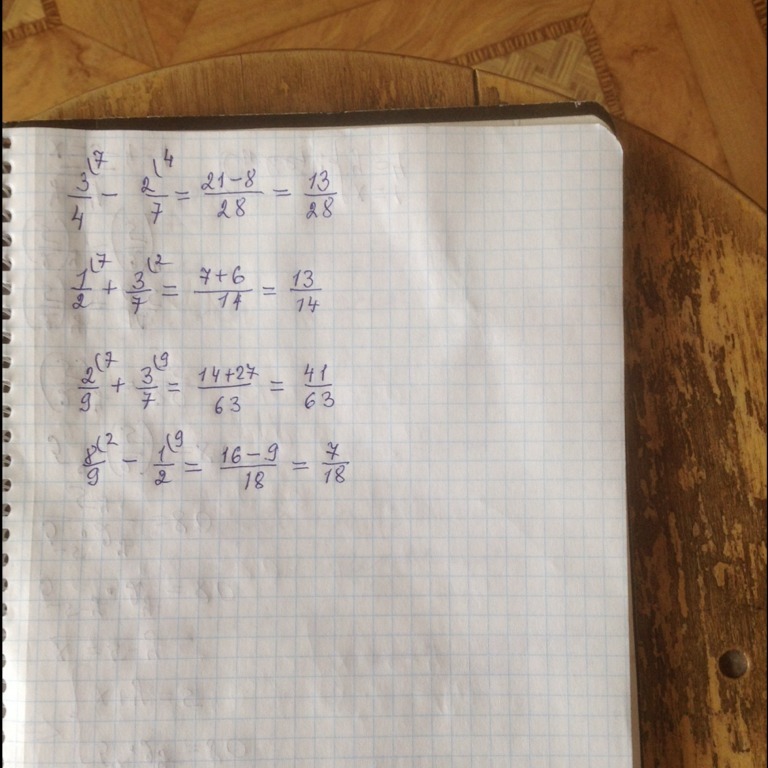 3/4⁽⁷ − 2/7⁽⁴ = (21−8)/28 = 13/28
1/2⁽⁷ + 3/7⁽² = (7+6)/14 = 13/14
2/9⁽⁷ + 3/7⁽⁹ = (14+27)/63 = 41/63
8/9⁽² − 1/2⁽⁹ = (16−9)/18 = 7/18